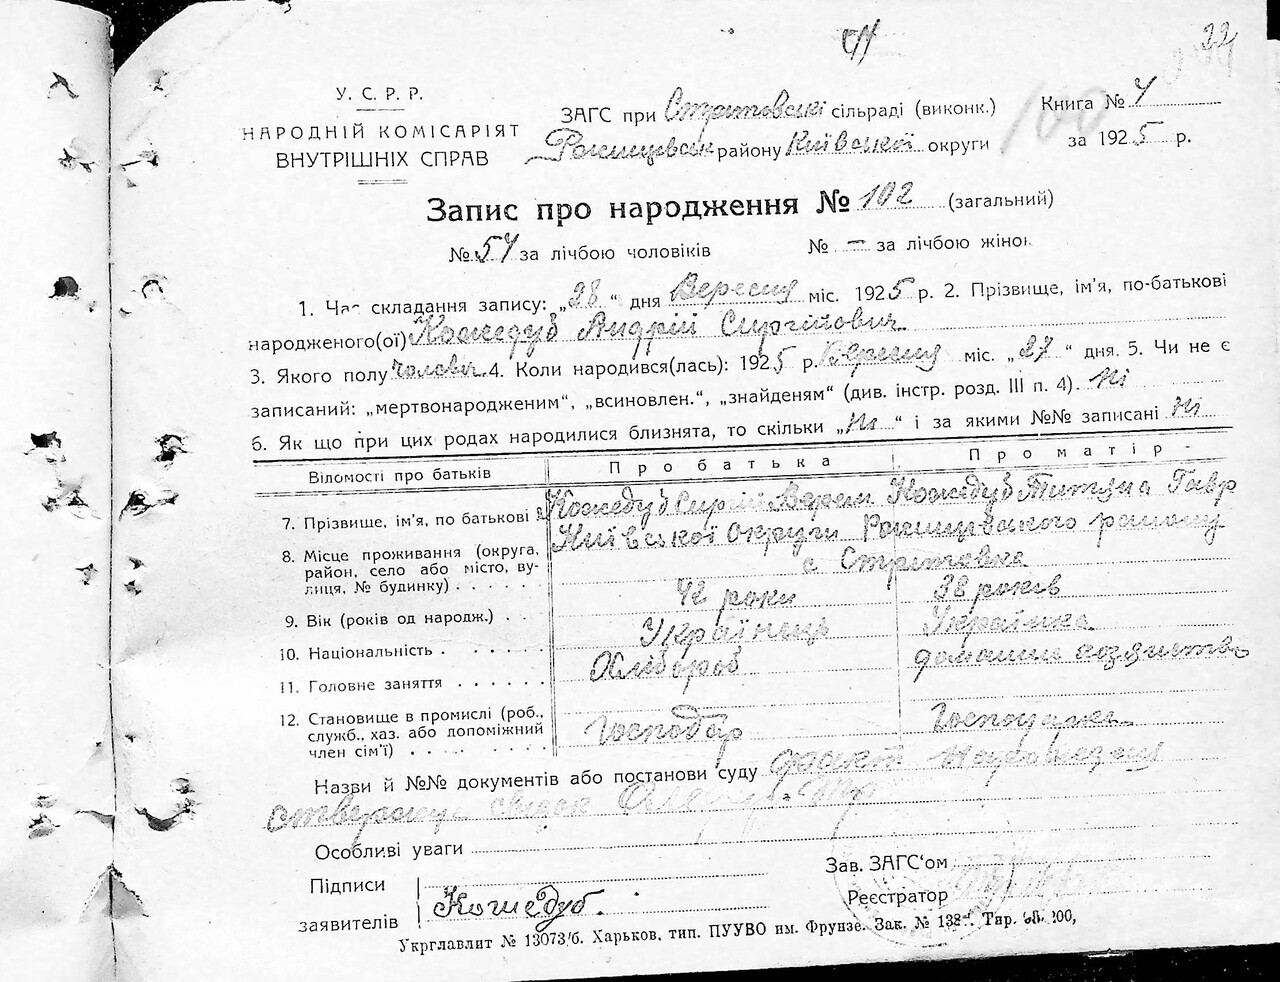 22
У. С. Р. Р.
НАРОДНІЙ КОМІСАРІЯТ
ВНУТРІШНІХ СПРАВ
ЗАГС при Стритовські сільраді (виконк.)
Ржищевськ району Київської округи
Книга № 4
за 1925 р.
100
Запис про народження № 102 (загальний)
№ 54 за лічбою чоловіків № — за лічбою жінок
1. Час складання запису: „28" дня Вересня міс. 1925 р. 2. Прізвище, ім'я, по-батькові
народженого(ої) Кожедуб Андрій Сиргійович
3. Якого полу чоловіч. 4. Коли народився(лась): 1925 р. Вересня міс. „27" дня. 5. Чи не є
записаний: „мертвонародженим", „всиновлен.", „знайденям" (див. інстр. розд. III п. 4). Ні
6. Як що при цих родах народилися близнята, то скільки „Ні" і за якими №№ записані Ні
Відомості про батьків Про батька Про матір
7. Прізвище, ім'я, по батькові Кожедуб Сиргій Кожедуб Титяна Гавр
8. Місце проживання (округа, район, село або місто, вулиця, № будинку) Київської Округи Ржищівського району
с Стритовка
9. Вік (років од народж.) 42 роки 38 років
10. Національність Українець Українка
11. Головне заняття Хлібороб домашнє хозяйство
12. Становище в промислі (роб., служб., хаз. або допоміжний член сім'ї) Господар Господарка
Назви й №№ документів або постанови суду факт народження
ствержує свідок
Особливі уваги
Підписи
заявителів Кожедуб.
Зав. ЗАГС'ом
Реєстратор
Укрглавлит № 13073/б. Харьков, тип. ПУУВО им. Фрунзе. Зак. № 1384. Тир.